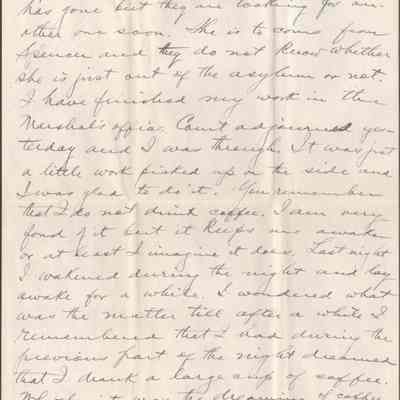 has gone but they are looking for an-
other one soon. She is to come from
Spencer and they do not know whether
she is just out of the asylum or not.
I have finished my work in the
Marshal's office. Court adjourned yes-
terday and I was through. It was just
a little work picked up on the side and
I was glad to do it. You remember
that I do not drink coffee. I am very
fond of it but it keeps me awake
or at least I imagine it does. Last night
I wakened during the night and lay
awake for a while. I wondered what
was the matter till after a while I
remembered that I had during the
previous part of the night dreamed
that I drank a large cup of coffee.
it was the dreaming of coffee